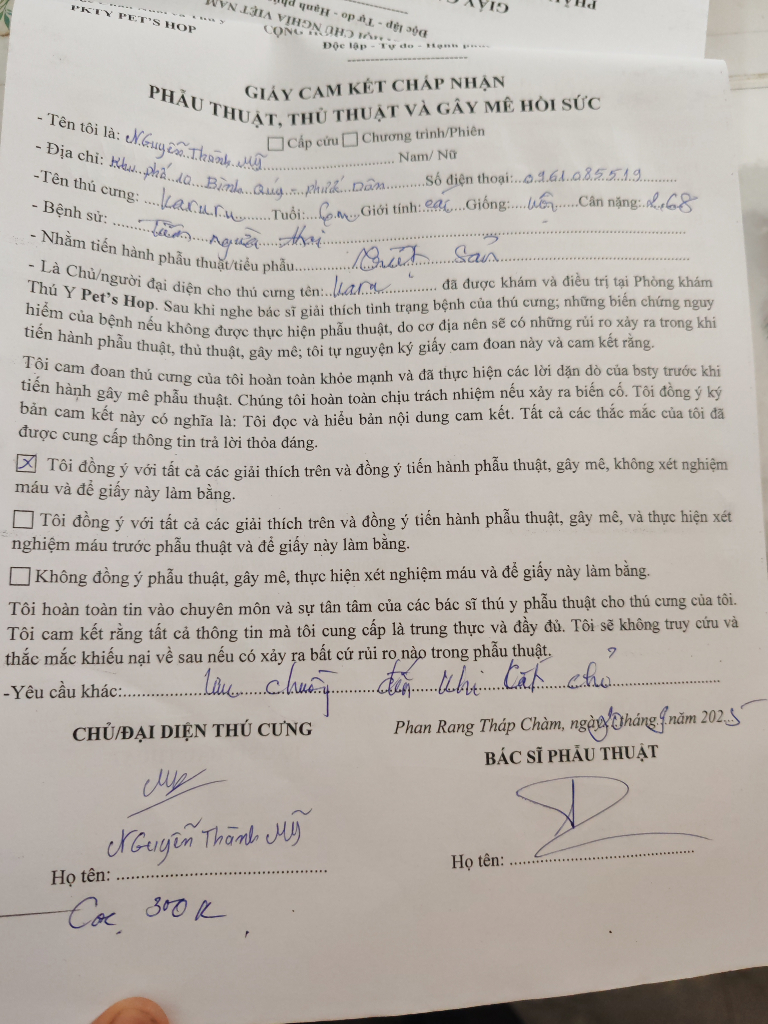 PKTY PET'S HOP
GIẤY
CỘNG HÒA XÃ HỘI CHỦ NGHĨA VIỆT NAM
Độc lập - Tự do - Hạnh phúc
CỘNG
Độc lập - Tự do - Hạnh phúc
GIẤY CAM KẾT CHẤP NHẬN
PHẪU THUẬT, THỦ THUẬT VÀ GÂY MÊ HỒI SỨC
☐ Cấp cứu ☐ Chương trình/Phiên
- Tên tôi là: Nguyễn Thành Mỹ Nam/ Nữ
- Địa chỉ: Khu phố 10 Bình Quý - phước Dân Số điện thoại: 0961.085519
-Tên thú cưng: Karuru Tuổi: 6m Giới tính: cái Giống: Cân nặng: 2,68
- Bệnh sử: Tiêm ngừa
- Nhằm tiến hành phẫu thuật/tiểu phẫu triệt sản
- Là Chủ/người đại diện cho thú cưng tên: Karu đã được khám và điều trị tại Phòng khám
Thú Y Pet's Hop. Sau khi nghe bác sĩ giải thích tình trạng bệnh của thú cưng; những biến chứng nguy
hiểm của bệnh nếu không được thực hiện phẫu thuật, do cơ địa nên sẽ có những rủi ro xảy ra trong khi
tiến hành phẫu thuật, thủ thuật, gây mê; tôi tự nguyện ký giấy cam đoan này và cam kết rằng.
Tôi cam đoan thú cưng của tôi hoàn toàn khỏe mạnh và đã thực hiện các lời dặn dò của bsty trước khi
tiến hành gây mê phẫu thuật. Chúng tôi hoàn toàn chịu trách nhiệm nếu xảy ra biến cố. Tôi đồng ý ký
bản cam kết này có nghĩa là: Tôi đọc và hiểu bản nội dung cam kết. Tất cả các thắc mắc của tôi đã
được cung cấp thông tin trả lời thỏa đáng.
☒ Tôi đồng ý với tất cả các giải thích trên và đồng ý tiến hành phẫu thuật, gây mê, không xét nghiệm
máu và để giấy này làm bằng.
☐ Tôi đồng ý với tất cả các giải thích trên và đồng ý tiến hành phẫu thuật, gây mê, và thực hiện xét
nghiệm máu trước phẫu thuật và để giấy này làm bằng.
☐ Không đồng ý phẫu thuật, gây mê, thực hiện xét nghiệm máu và để giấy này làm bằng.
Tôi hoàn toàn tin vào chuyên môn và sự tân tâm của các bác sĩ thú y phẫu thuật cho thú cưng của tôi.
Tôi cam kết rằng tất cả thông tin mà tôi cung cấp là trung thực và đầy đủ. Tôi sẽ không truy cứu và
thắc mắc khiếu nại về sau nếu có xảy ra bất cứ rủi ro nào trong phẫu thuật.
-Yêu cầu khác: lưu chuồng đến khi cắt chỉ
Phan Rang Tháp Chàm, ngày tháng 9 năm 2025
CHỦ/ĐẠI DIỆN THÚ CƯNG
BÁC SĨ PHẪU THUẬT
Nguyễn Thành Mỹ
Họ tên:
Họ tên:
Cọc 300K